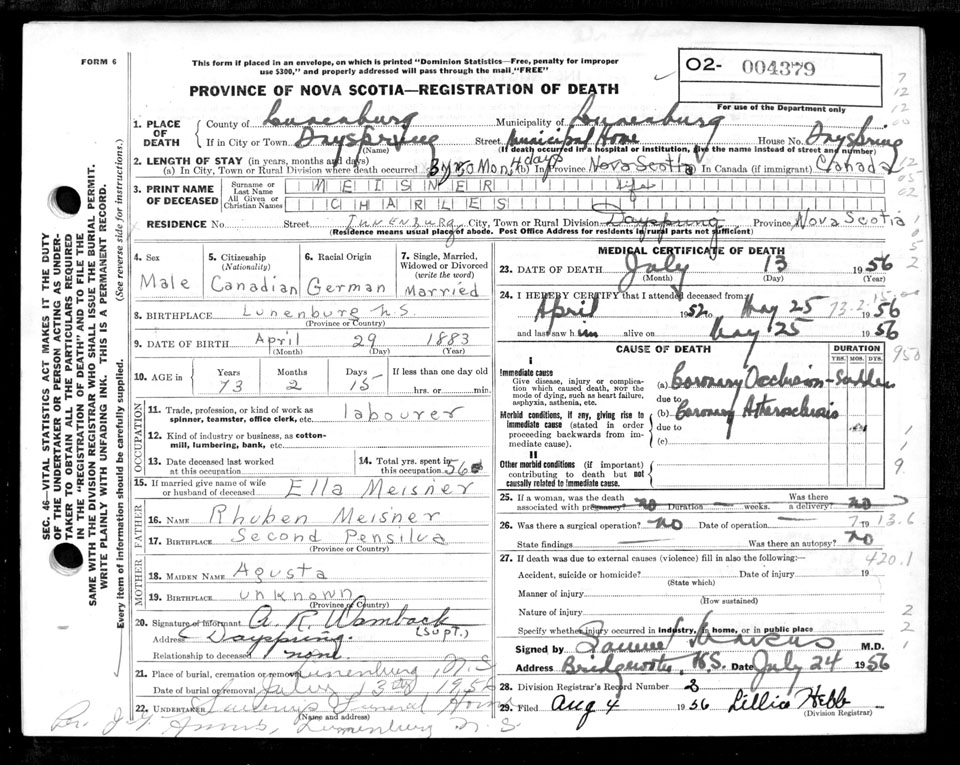 FORM 6
This form if placed in an envelope, on which is printed "Dominion Statistics—Free, penalty for improper
use $300," and properly addressed will pass through the mail "FREE"
O2- 004379
For use of the Department only
PROVINCE OF NOVA SCOTIA—REGISTRATION OF DEATH
1. PLACE OF DEATH County of Lunenburg Municipality of Lunenburg
If in City or Town Dayspring Street Municipal Home House No. Dayspring
(Name) (If death occurred in a hospital or institution, give the name instead of street and number)
2. LENGTH OF STAY (in years, months and days)
(a) In City, Town or Rural Division where death occurred 3 yrs 0 Mon, 4 days (b) In Province Nova Scotia In Canada (if immigrant) Canada
3. PRINT NAME OF DECEASED Surname or Last Name MEISNER life
All Given or Christian Names CHARLES
RESIDENCE No. Street Lunenburg City, Town or Rural Division Dayspring Province Nova Scotia
(Residence means usual place of abode. Post Office Address for residents in rural parts not sufficient)
4. Sex Male
5. Citizenship (Nationality) Canadian
6. Racial Origin German
7. Single, Married, Widowed or Divorced (write the word) Married
8. BIRTHPLACE Lunenburg N.S.
(Province or Country)
9. DATE OF BIRTH April 29 1883
(Month) (Day) (Year)
10. AGE in Years Months Days If less than one day old
73 2 15 hrs. or min.
OCCUPATION
11. Trade, profession, or kind of work as spinner, teamster, office clerk, etc. labourer
12. Kind of industry or business, as cotton-mill, lumbering, bank, etc.
13. Date deceased last worked at this occupation
14. Total yrs. spent in this occupation 56
15. If married give name of wife or husband of deceased Ella Meisner
FATHER
16. NAME Rhuben Meisner
17. BIRTHPLACE Second Pensilva
(Province or Country)
MOTHER
18. MAIDEN NAME Agusta
19. BIRTHPLACE unknown
(Province or Country)
20. Signature of informant A. R. Wambach (Supt.)
Address Dayspring.
Relationship to deceased none.
21. Place of burial, cremation or removal Lunenburg N.S
Date of burial or removal July 1956
22. UNDERTAKER Funeral Home
(Name and address)
Lunenburg N.S.
MEDICAL CERTIFICATE OF DEATH
23. DATE OF DEATH July 13 1956
(Month) (Day) (Year)
24. I HEREBY CERTIFY that I attended deceased from
April 1952 to May 25 1956
and last saw him alive on May 25 1956
CAUSE OF DEATH
DURATION
YRS. MOS. DYS.
I
Immediate cause
Give disease, injury or complication which caused death, not the mode of dying, such as heart failure, asphyxia, asthenia, etc.
(a) Coronary Occlusion - Sudden
due to
Morbid conditions, if any, giving rise to immediate cause (stated in order proceeding backwards from immediate cause).
(b) Coronary Atherosclerosis
due to
(c)
II
Other morbid conditions (if important) contributing to death but not causally related to immediate cause.
25. If a woman, was the death associated with pregnancy? no Duration weeks. Was there a delivery? no
26. Was there a surgical operation? no Date of operation 19
State findings Was there an autopsy? no
27. If death was due to external causes (violence) fill in also the following:—
Accident, suicide or homicide? Date of injury 19
(State which)
Manner of injury
(How sustained)
Nature of injury
Specify whether injury occurred in industry, in home, or in public place
Signed by Samuel Marcus M.D.
Address Bridgewater N.S. Date July 24 1956
28. Division Registrar's Record Number 3
29. Filed Aug 4 1956 Lillia Hebb
(Division Registrar)
420.1
SEC. 46—VITAL STATISTICS ACT MAKES IT THE DUTY
OF THE UNDERTAKER OR PERSON ACTING AS UNDER-
TAKER TO OBTAIN ALL THE PARTICULARS REQUIRED
IN THE "REGISTRATION OF DEATH" AND TO FILE THE
SAME WITH THE DIVISION REGISTRAR WHO SHALL ISSUE THE BURIAL PERMIT.
WRITE PLAINLY WITH UNFADING INK. THIS IS A PERMANENT RECORD.
Every item of information should be carefully supplied. (See reverse side for instructions.)